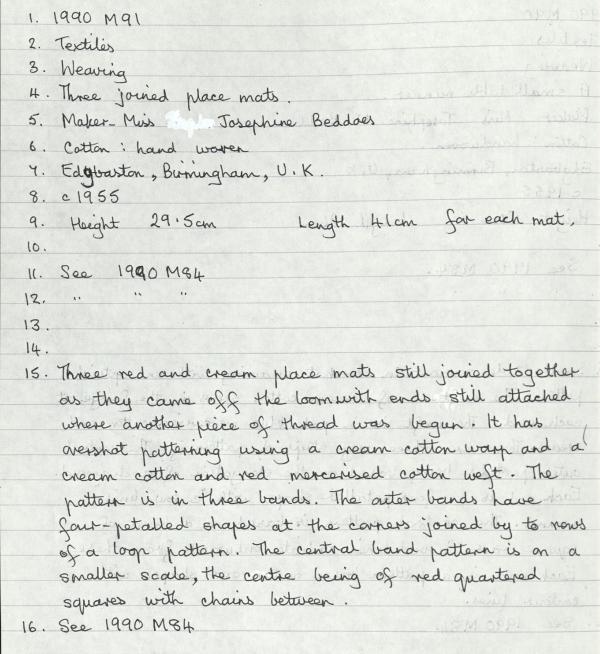 1. 1990 M91
2. Textiles
3. Weaving
4. Three joined place mats.
5. Maker - Miss Josephine Beddoes
6. Cotton : hand woven
7. Edgbaston, Birmingham, U.K.
8. c 1955
9. Height 29.5cm Length 41cm for each mat.
10.
11. See 1990 M84
12. " " "
13.
14.
15. Three red and cream place mats still joined together
as they came off the loom with ends still attached
where another piece of thread was begun. It has
overshot patterning using a cream cotton warp and a
cream cotton and red mercerised cotton weft. The
pattern is in three bands. The outer bands have
four-petalled shapes at the corners joined by to rows
of a loop pattern. The central band pattern is on a
smaller scale, the centre being of red quartered
squares with chains between.
16. See 1990 M84